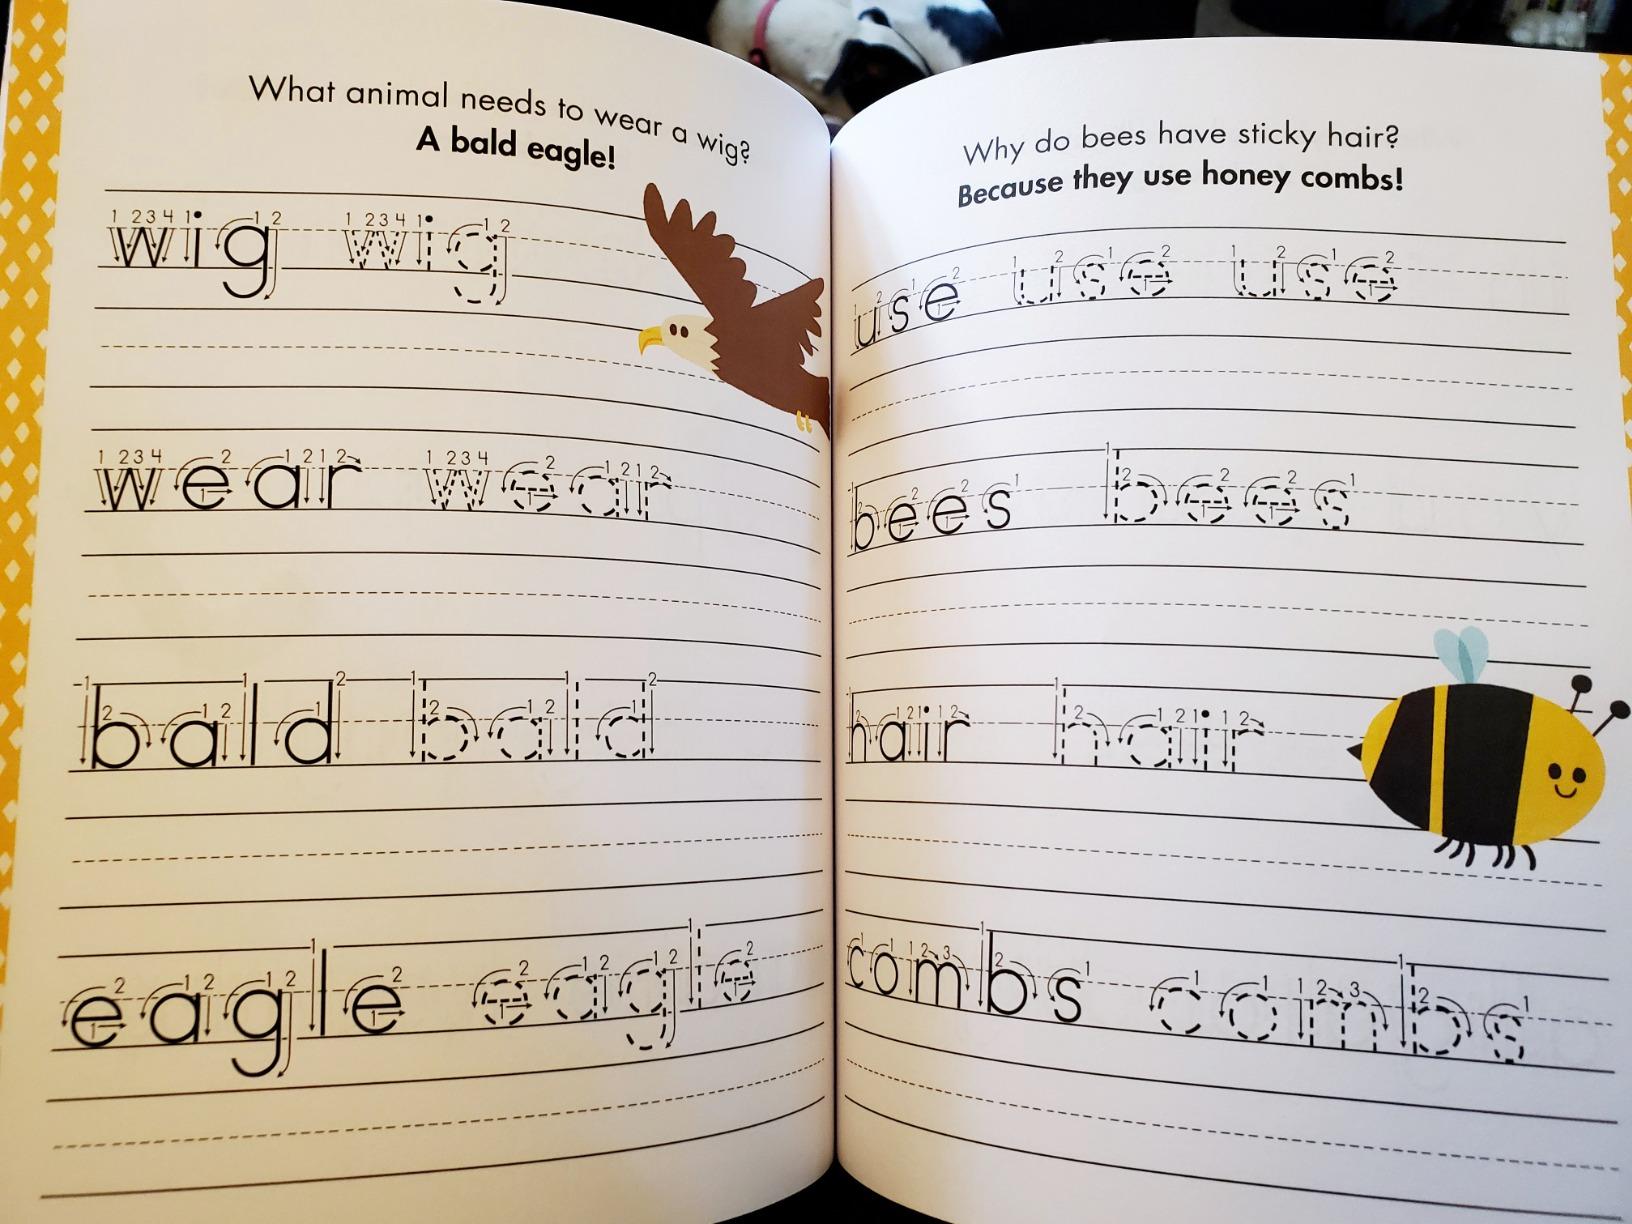 What animal needs to wear a wig?
A bald eagle!
wig wig
wear wear
bald bald
eagle eagle
Why do bees have sticky hair?
Because they use honey combs!
use use use
bees bees
hair hair
combs combs